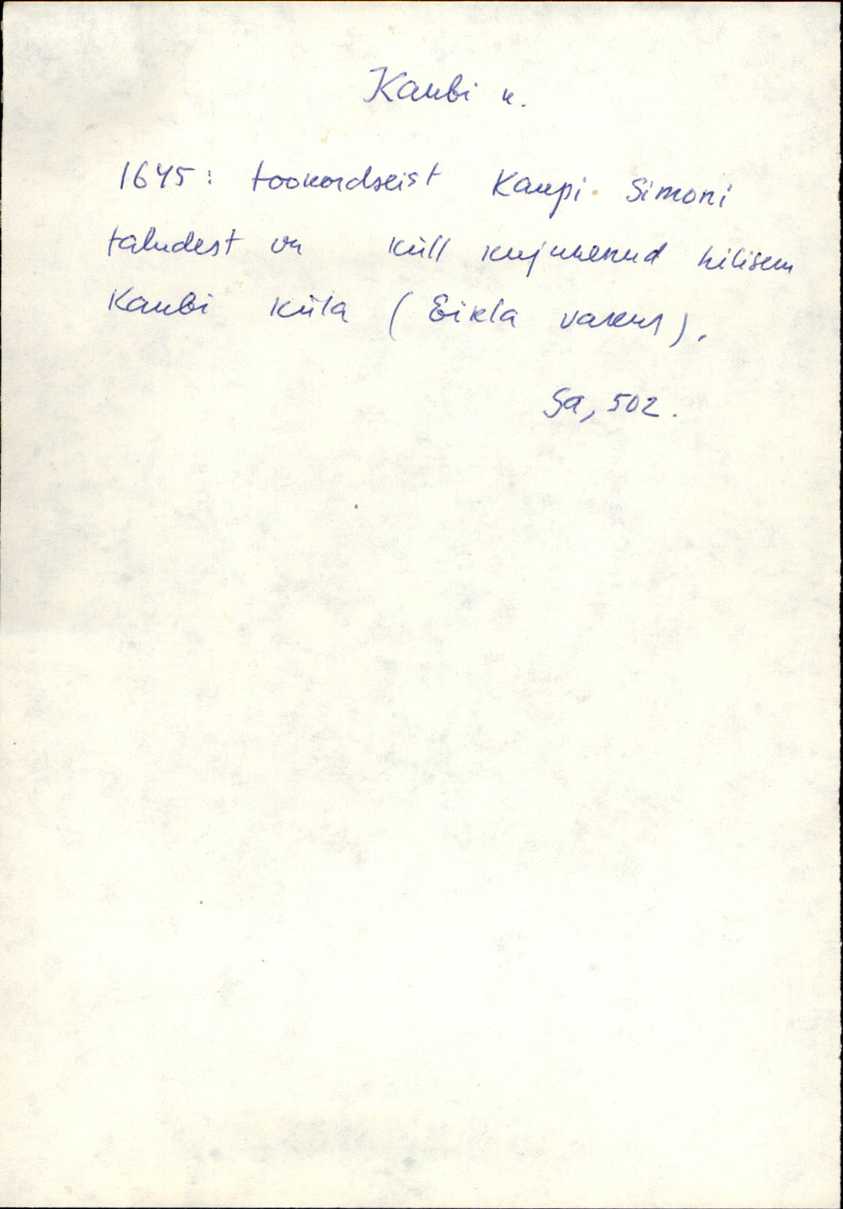 Kaubi k.
1645: tookordseist Kaupi Simoni
taludest on küll kujunenud hilisem
Kaubi küla (Eikla vakus).
Sa, 502.